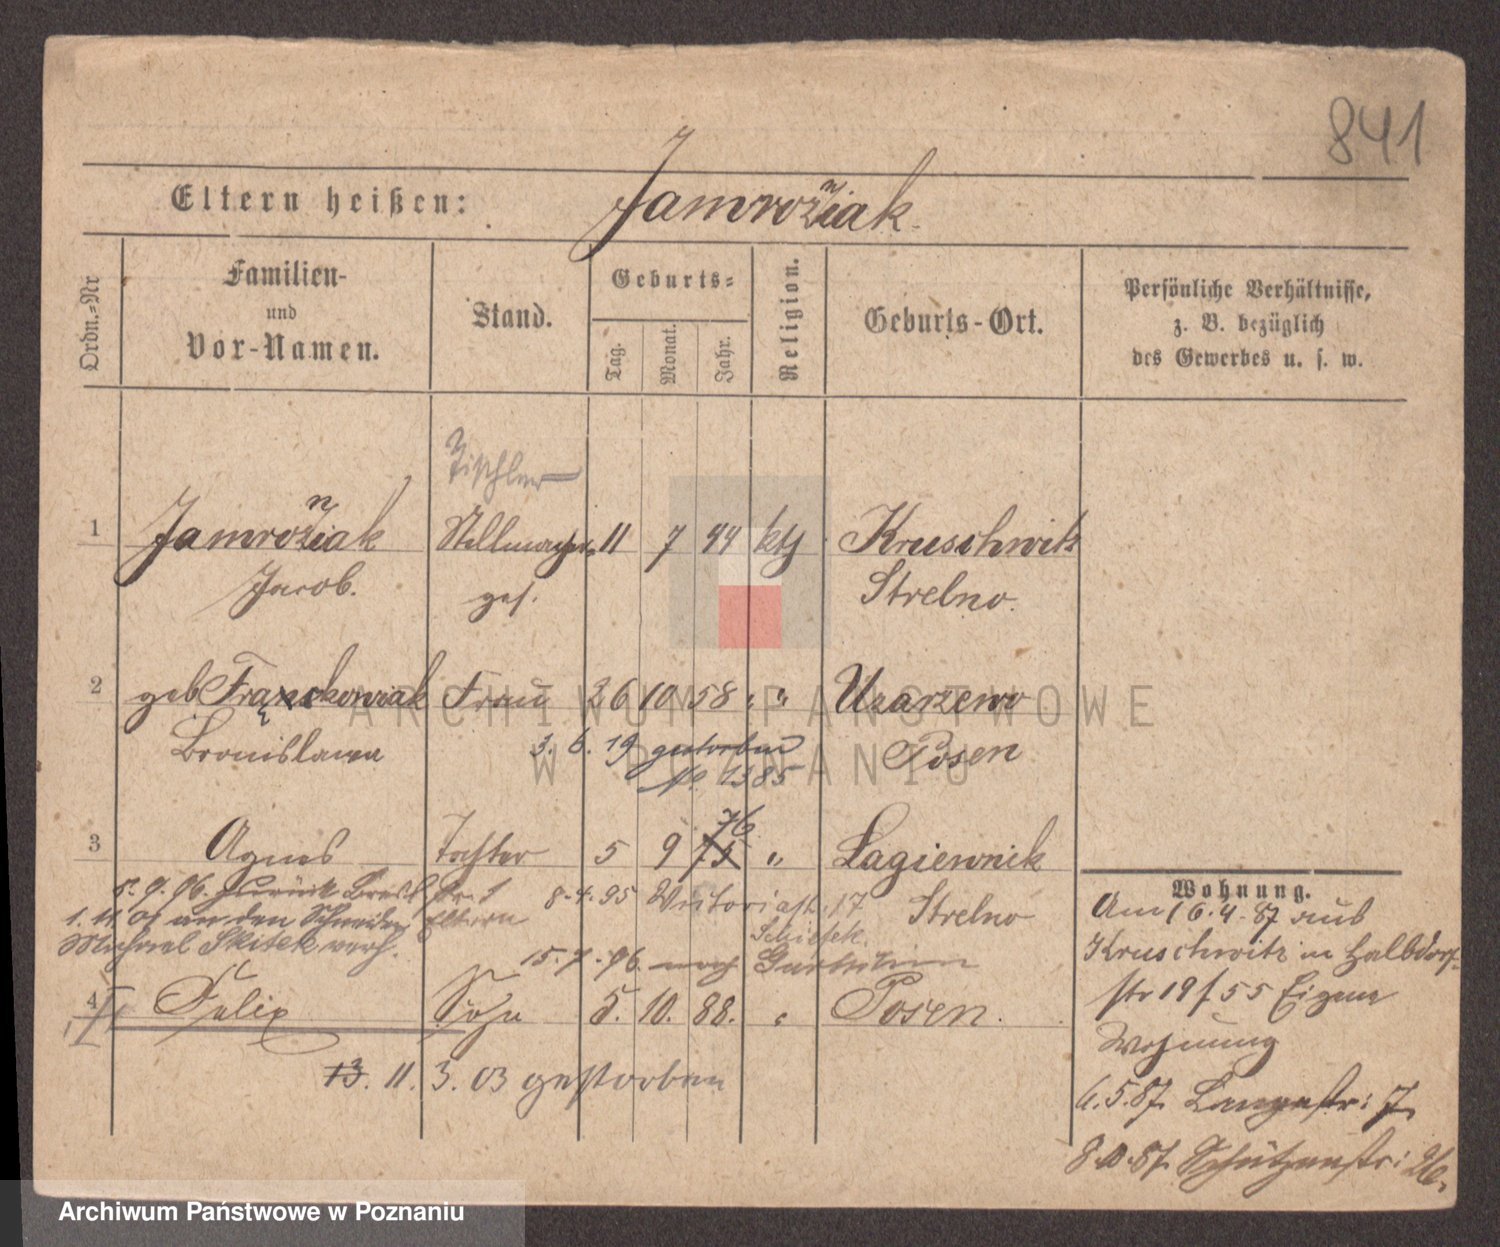 841
Eltern heißen: Jamrożiak
n
Ordn.-Nr
Familien-
und
Vor-Namen.
Stand.
Geburts-
Tag.
Monat.
Jahr.
Religion.
Geburts-Ort.
Persönliche Verhältnisse,
z. B. bezüglich
des Gewerbes u. s. w.
Tischler
n
1 Jamrożiak Stellmacher 11 7 44 kth Kruschwitz
Jacob. ges. Strelno.
2 geb Franckowiak Frau 26 10 58 " " Uzarzewo
Bronislawa Posen
3. 6. 19 gestorben
No. 1385
76
3 Agnes Tochter 5 9 75 " Lagiewnik
Strelno
5. 9. 96. zurück
Eltern
8.4.95 Victoriastr. 17
1. 11. 01 an den Schneider
Michael Skitek verh.
15. 7. 96. nach
4 Felix Sohn 5. 10. 88. " Posen.
13. 11. 3. 03 gestorben
Wohnung.
Am 16.4.87 aus
Kruschwitz in Halbdorf-
str 19/55 Eigene
Wohnung
6.5.87. Langestr: 7.
8.10.87. Schützenstr: 26.
ARCHIWUM PAŃSTWOWE
W POZNANIU
Archiwum Państwowe w Poznaniu